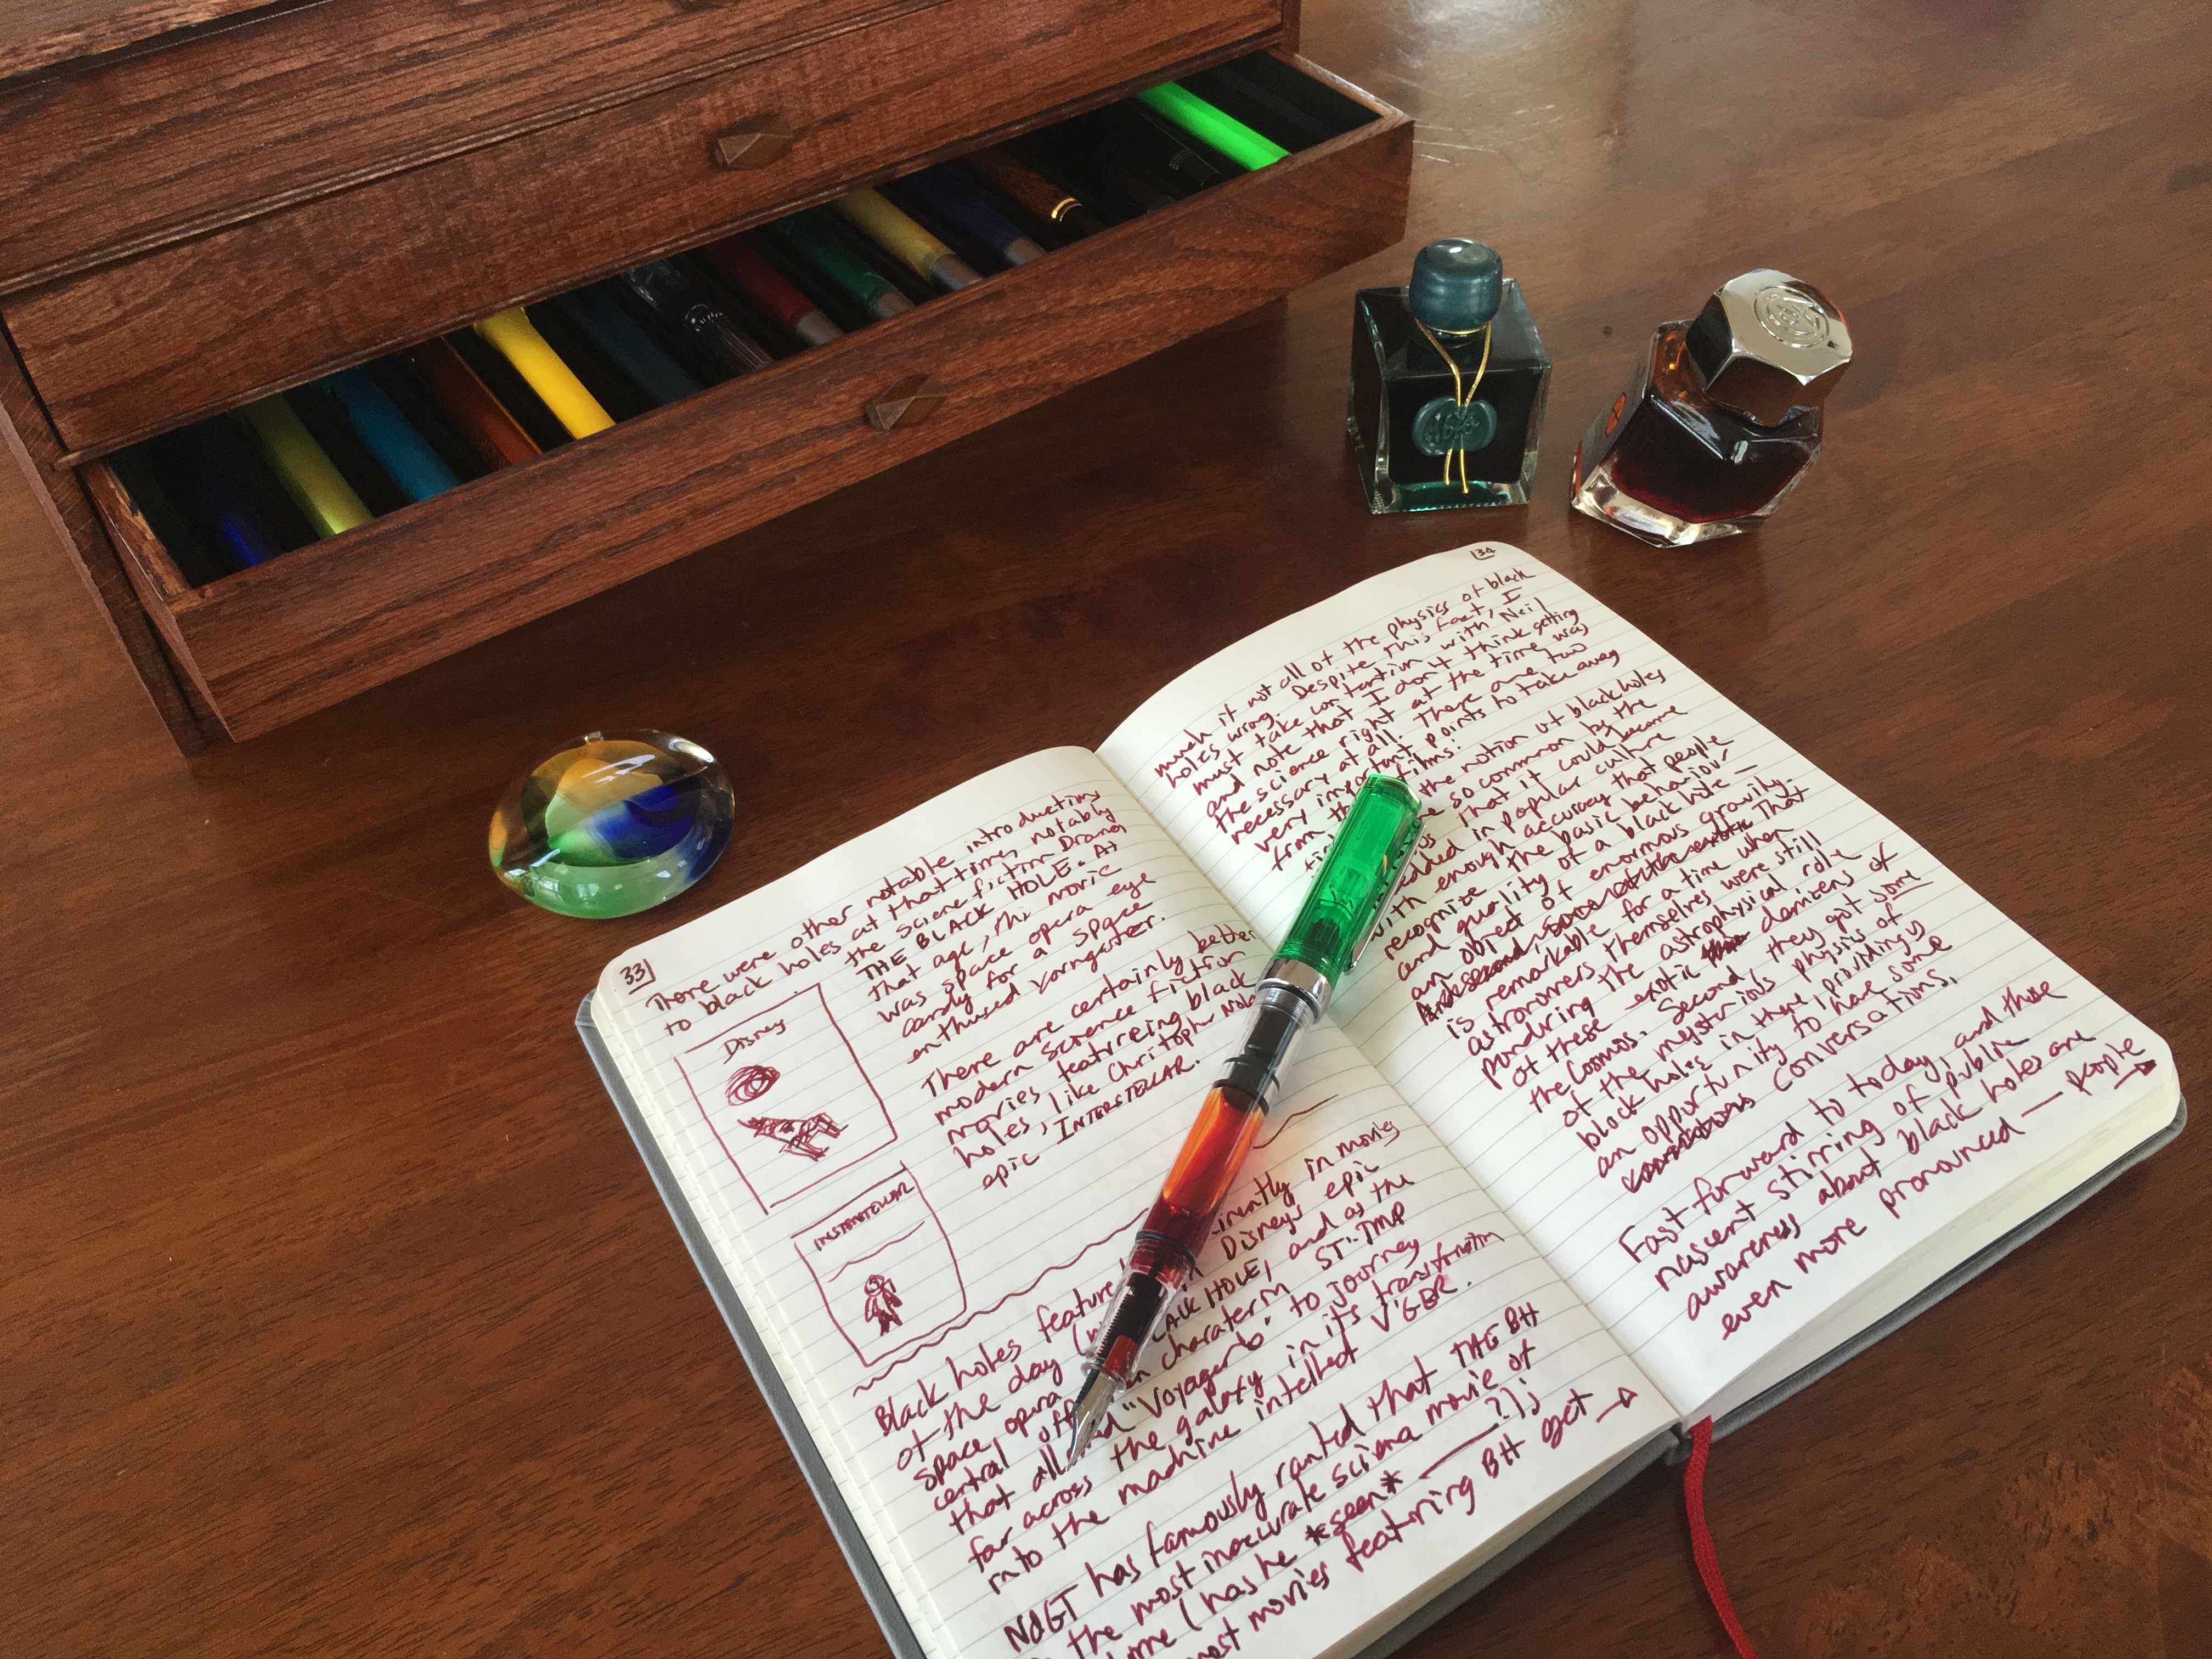 33
There were other notable introductions
to black holes at that time, notably
the science fiction Drama
THE BLACK HOLE. At
that age, this movie
was space opera eye
candy for a space
enthused youngster.
There are certainly better
modern science fiction
movies featureing black
holes, like Christopher
epic INTERSTELLAR.
DISNEY
INSTERSTELLAR
Black holes feature
in movies
of the day
Disney's epic
space opera
HOLE, and as the
central
character in ST:TMP
that
"Voyager 6" to journey
far across the galaxy in it's
into the machine intellect V'GER.
NDGT has famously ranted that THE BH
the most inaccurate science movie of
time (has he *seen* ?);
most movies featuring BH get →
134
much if not all of the physics of black
holes wrong. Despite this fact, I
must take contention with Neil
and note that I don't think getting
the science right at the time was
necessary at all. There are two
very important points to take away
from films:
the notion of black holes
so common by the
that it could become
in popular culture
with enough accuracy that people
recognize the basic behaviour
and quality of a black hole —
an object of enormous gravity.
That
is remarkable for a time when
astronomers themselves were still
pondering the astrophysical role
of these exotic denizens of
the Cosmos. Second, they got some
of the mysterious physics of
black holes in there, providing us
an opportunity to have some
conversations.
Fast forward to today, and those
nascent stirring of public
awareness about black holes are
even more pronounced — people
→